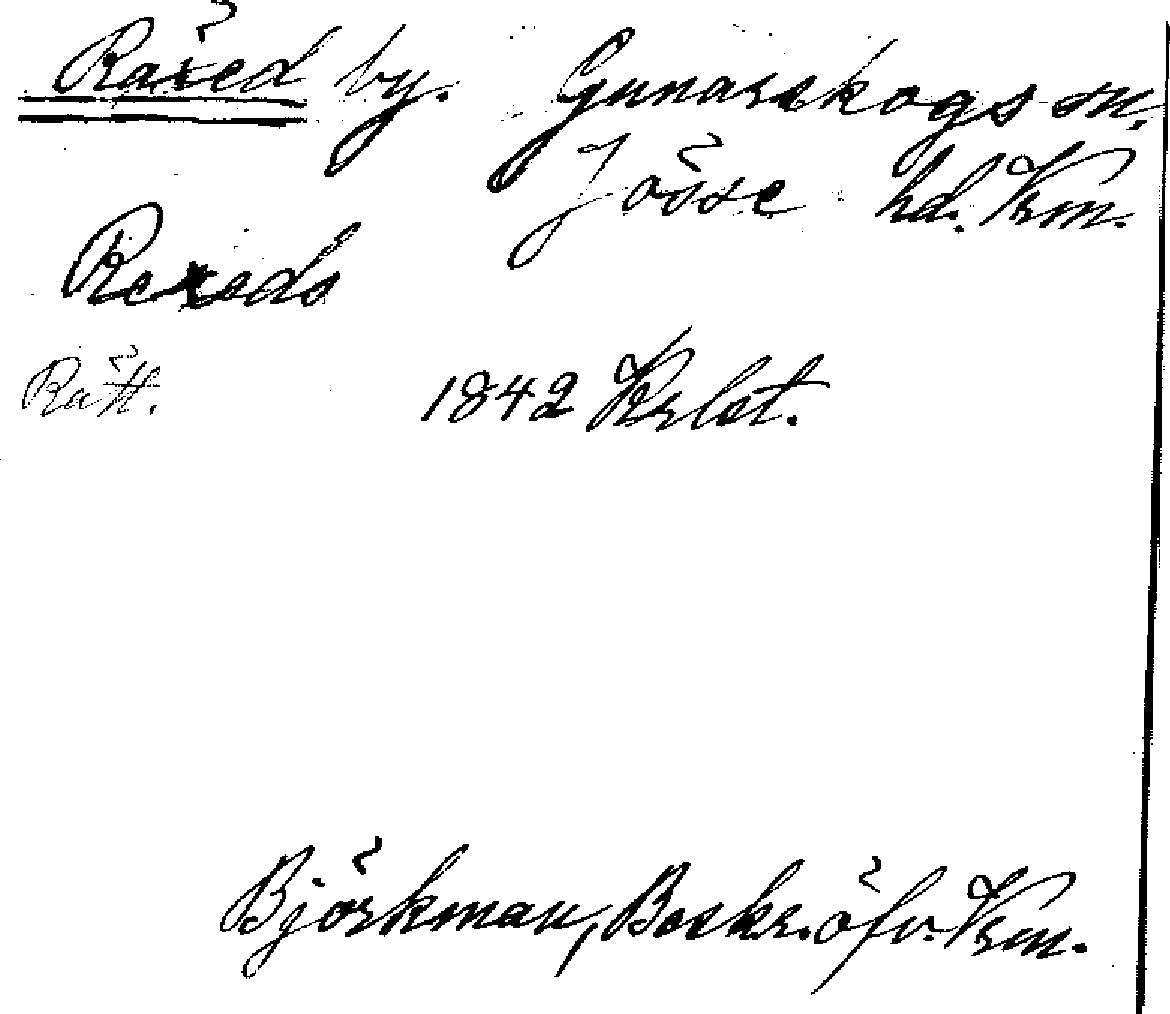 Räxed by. Gunarskogs sn.
Jösse hd. Vrm.
Rexeds
Rätt. 1842 Krlst.
Björkman, Beskr. öfv. Vrm.